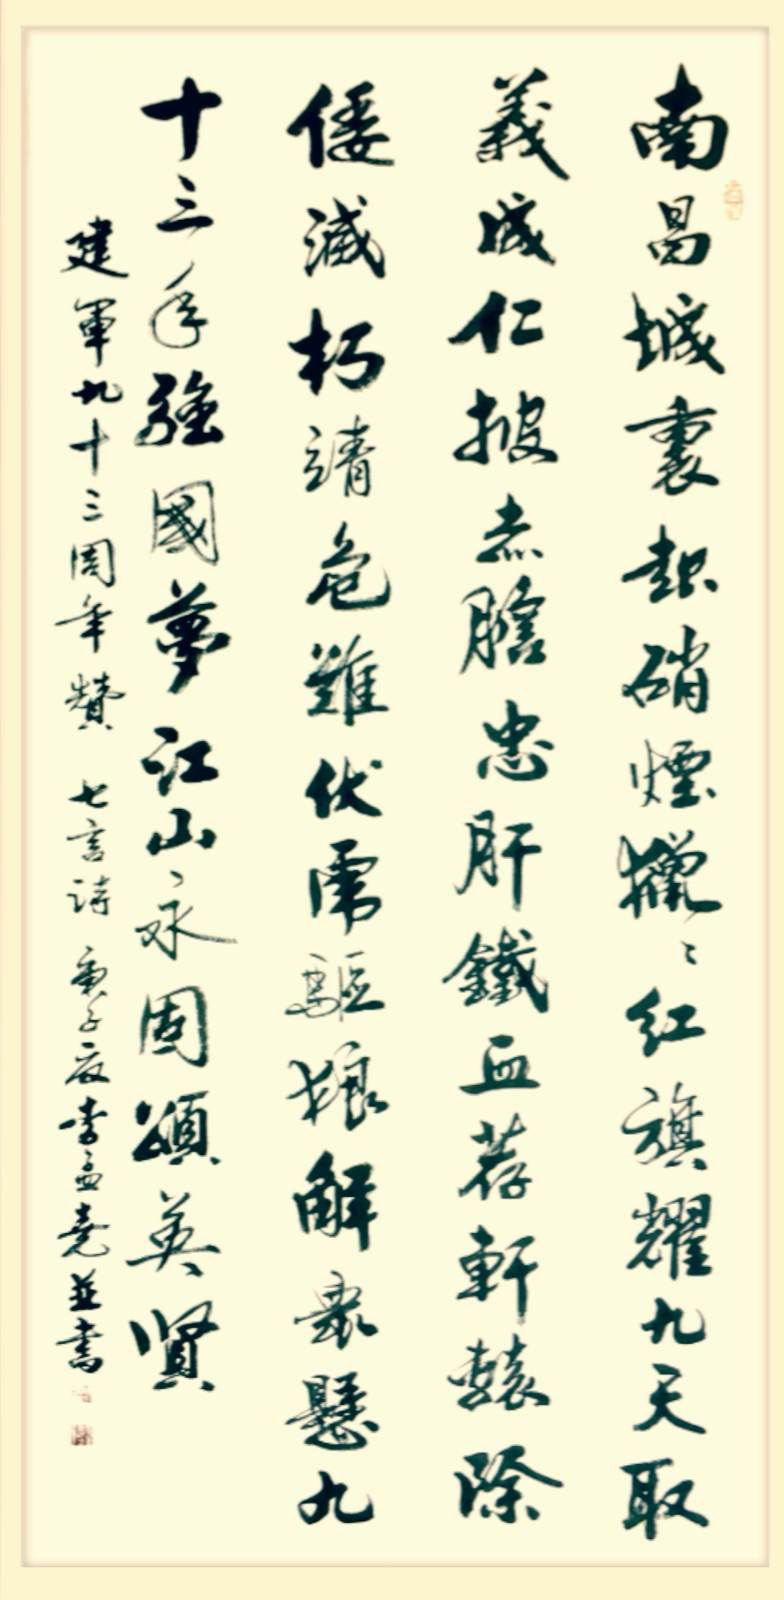 南昌城裏起硝煙獵〻红旗耀九天取
義成仁披赤膽忠肝鐵血荐軒轅除
倭滅朽靖危難伏虎驅狼解衆懸九
十三年强國夢江山永固頌英賢
建軍九十三周年贊 七言詩 庚子夏李孟堯並書